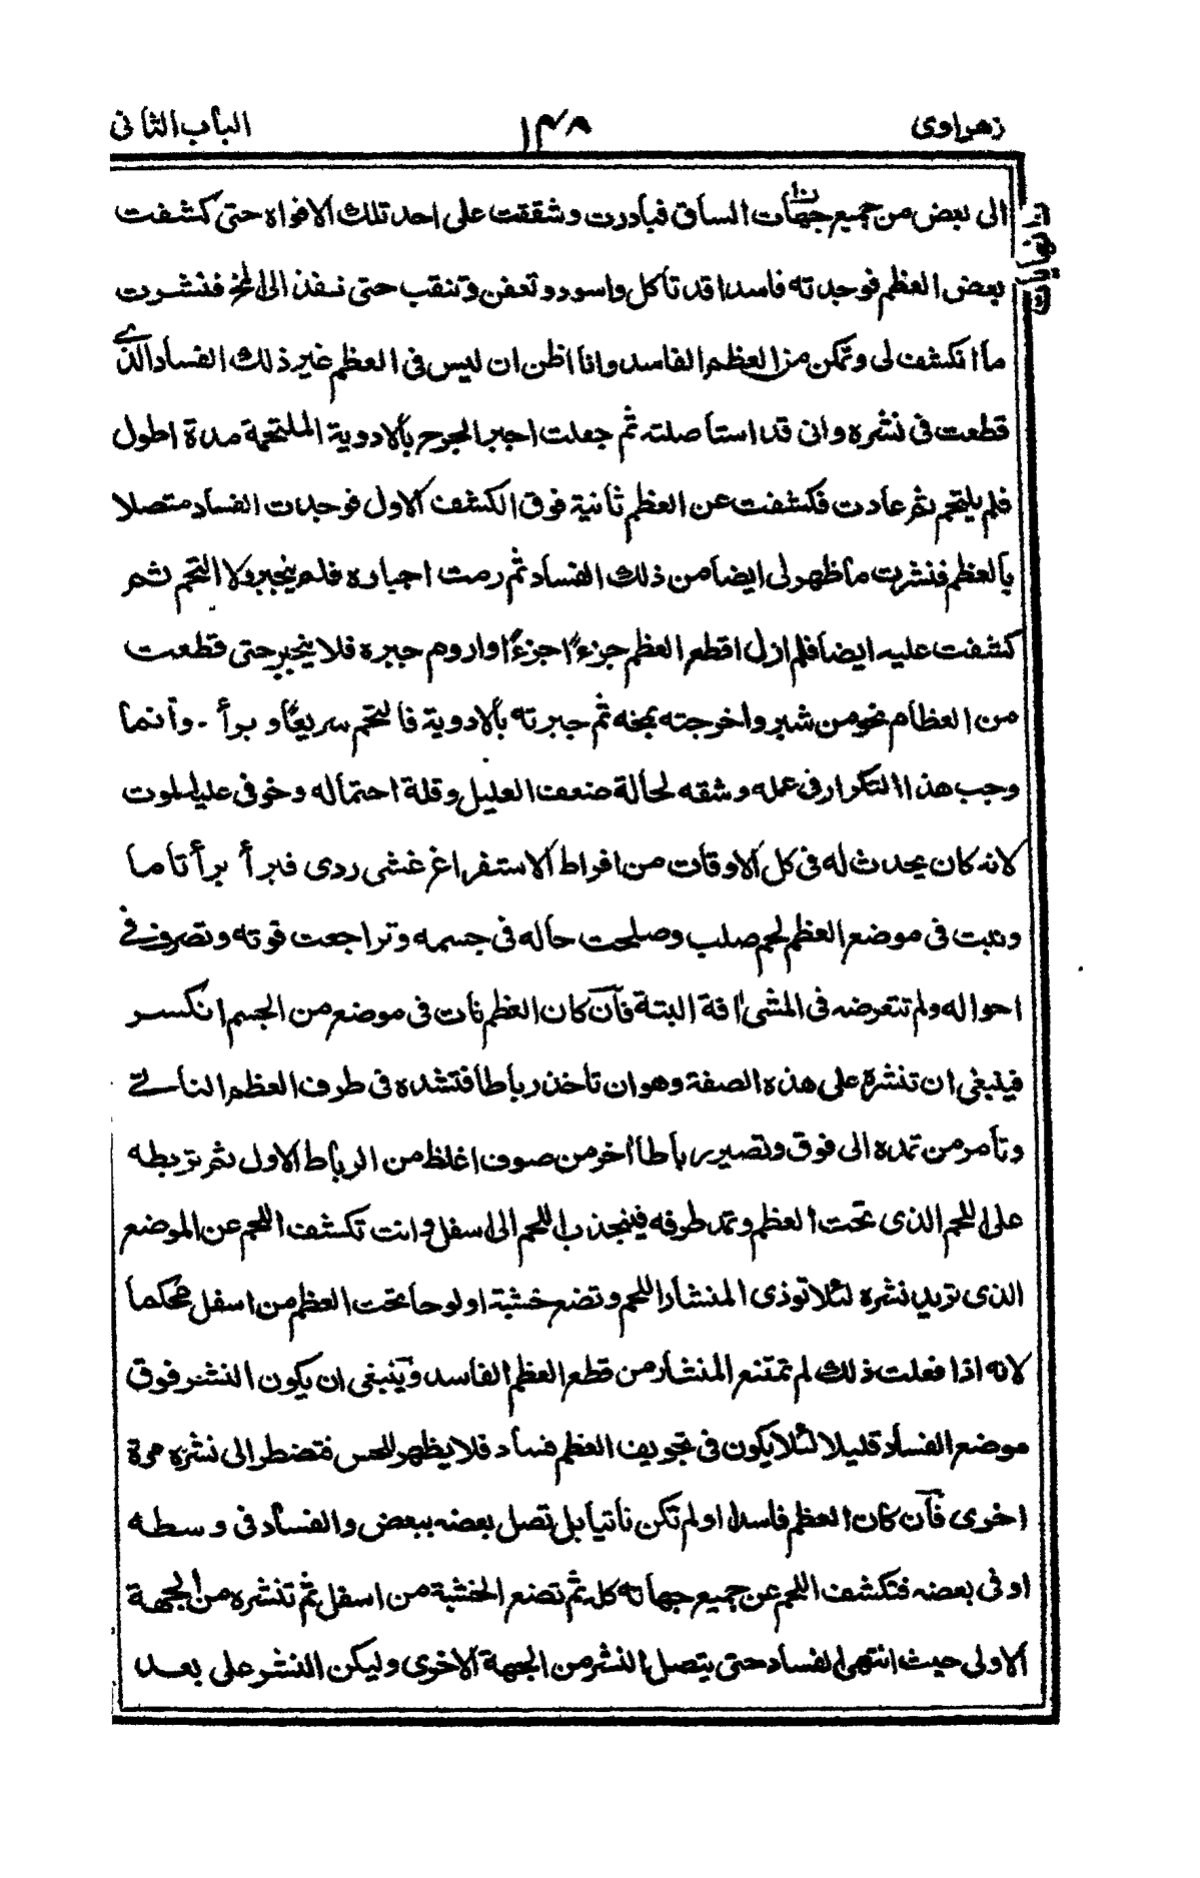 زهراوى ١٤٨ الباب الثانى
الى بعض من جميع جهات الساق فبادرت وشققت على احد تلك الافواه حتى كشفت
بعض العظم فوجدته فاسدا قد تأكل واسود وتعفن وتنقب حتى نفذ الى المخ فنشرت
ما انكشف لى وتمكن من العظم الفاسد وانا اظن ان ليس فى العظم غير ذلك الفساد الذى
قطعت فى نشره وانى قد استأصلته ثم جعلت اجبر الجرح بالادوية الملتحمة مدة اطول
فلم يلتحم ثم عادت فكشفت عن العظم ثانية فوق الكشف الاول فوجدت الفساد متصلا
بالعظم فنشرت ما ظهر لى ايضا من ذلك الفساد ثم رمت اجباره فلم ينجبر ولا التحم ثم
كشفت عليه ايضا فلم ازل اقطع العظم جزءًا جزءًا واروم جبره فلا ينجبر حتى قطعت
من العظام نحو من شبر واخرجته بمخه ثم جبرته بالادوية فالتحم سريعًا وبرأ . وأنما
وجب هذا التكرار فى عمله وشقه لحالة ضعف العليل وقلة احتماله وخوفى عليه الموت
لانه كان يحدث له فى كل الاوقات من افراط الاستفراغ غشى ردى فبرأ برأ تاما
ونبت فى موضع العظم لحم صلب وصلحت حاله فى جسمه وتراجعت قوته وتصرف فى
احواله ولم تتعرضه فى المشى افة البتة فآن كان العظم نات فى موضع من الجسم انكسر
فينبغى ان تنشره على هذه الصفة وهو ان تأخذ رباطا فتشده فى طرف العظم الناتئ
وتأمر من تمده الى فوق وتصير رباطا أخر من صوف اغلظ من الرباط الاول ثم تربطه
على اللحم الذى تحت العظم وتمد طرفه فينجذب اللحم الى اسفل وانت تكشف اللحم عن الموضع
الذى تريد نشره لئلا توذى المنشار اللحم وتضع خشبة او لوحا تحت العظم من اسفل محكما
لانه اذا فعلت ذلك لم تمتنع المنشار من قطع العظم الفاسد وينبغى ان يكون النشر فوق
موضع الفساد قليلا لئلا يكون فى تجويف العظم فساد فلا يظهر للحس فتضطر الى نشره مرة
اخرى فآن كان العظم فاسدا ولم تكن ناتيا بل تصل بعضه ببعض والفساد فى وسطه
او فى بعضه فتكشف اللحم عن جميع جهاته كله ثم تضع الخشبة من اسفل ثم تنشره من الجهة
الاولى حيث انتهى الفساد حتى يتصل النشر من الجهة الاخرى وليكن النشر على بعد